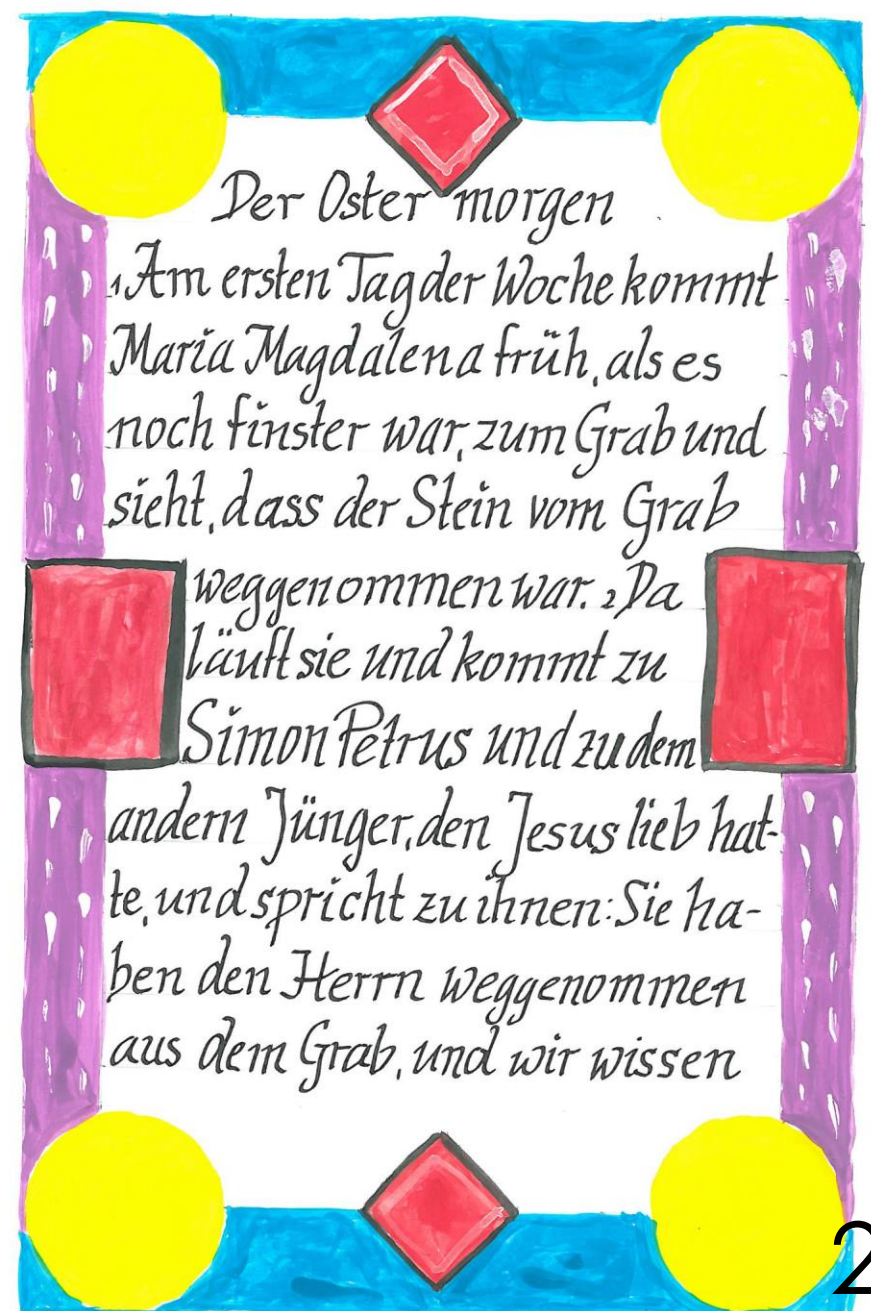 Der Oster morgen
1 Am ersten Tag der Woche kommt
Maria Magdalena früh, als es
noch finster war, zum Grab und
sieht, dass der Stein vom Grab
weggenommen war. 2 Da
läuft sie und kommt zu
Simon Petrus und zu dem
andern Jünger, den Jesus lieb hat-
te, und spricht zu ihnen: Sie ha-
ben den Herrn weggenommen
aus dem Grab, und wir wissen
2